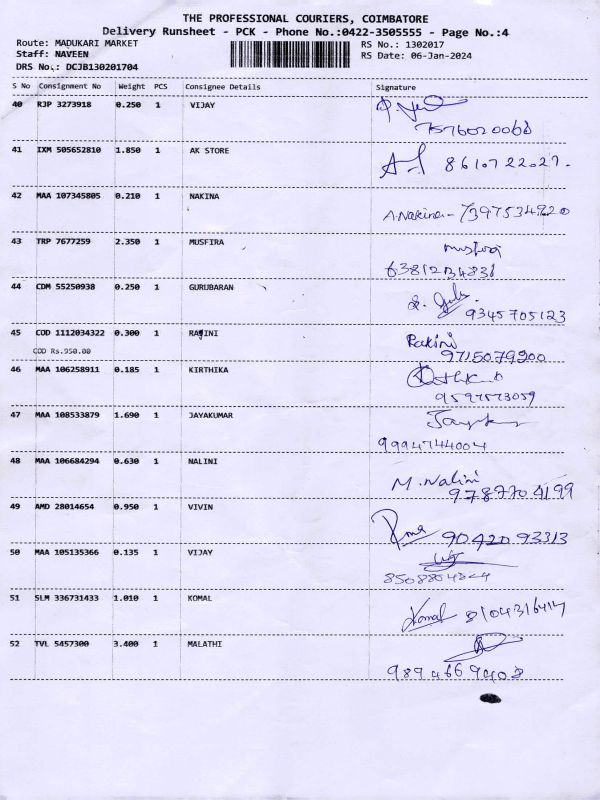 THE PROFESSIONAL COURIERS, COIMBATORE
Delivery Runsheet - PCK - Phone No.:0422-3505555 - Page No.:4
Route: MADUKARI MARKET RS No.: 1302017
Staff: NAVEEN RS Date: 06-Jan-2024
DRS No.: DCJB130201704
S No Consignment No Weight PCS Consignee Details Signature
40 RJP 3273918 0.250 1 VIJAY
41 IXM 505652810 1.850 1 AK STORE
42 MAA 107345805 0.210 1 NAKINA A.Nakina - 7397534920
43 TRP 7677259 2.350 1 MUSFIRA musfira
44 CDM 55250938 0.250 1 GURUBARAN
9345705123
45 COD 1112034322 0.300 1 RAGINI Rakini
COD Rs.950.00 9715079900
46 MAA 106258911 0.185 1 KIRTHIKA
9597573059
47 MAA 108533879 1.690 1 JAYAKUMAR
9994744004
48 MAA 106684294 0.630 1 NALINI M.Nalini
9787704199
49 AMD 28014654 0.950 1 VIVIN 90420 93313
50 MAA 105135366 0.135 1 VIJAY
51 SLM 336731433 1.010 1 KOMAL Komal 8104316414
52 TVL 5457300 3.400 1 MALATHI